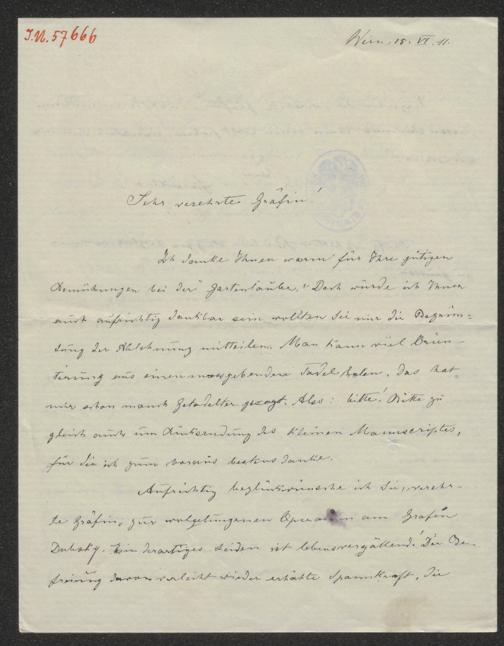 I.N. 57666
Wien, 15. VI. 11.
Sehr verehrte Gräfin!
Ich danke Ihnen warm für Ihre gütigen
Bemühungen bei der "Gartenlaube." Doch würde ich Ihnen
auch aufrichtig dankbar sein wollten Sie mir die Begrün-
dung der Ablehnung mitteilen. Man kann viel Orien-
tierung aus einem massgebenden Tadel holen, das hat
mir schon manch Getadelter gesagt. Also: bitte! Bitte zu
gleich auch um Rücksendung des kleinen Manuscriptes,
für die ich zum voraus bestens danke.
Aufrichtig beglückwünsche ich Sie, verehr-
te Gräfin, zur wolgelungenen Operation am Grafen
Dubsky. Ein derartiges Leiden ist lebensvergällend! Die Be-
freiung davon verleiht wieder erhöhte Spannkraft, die